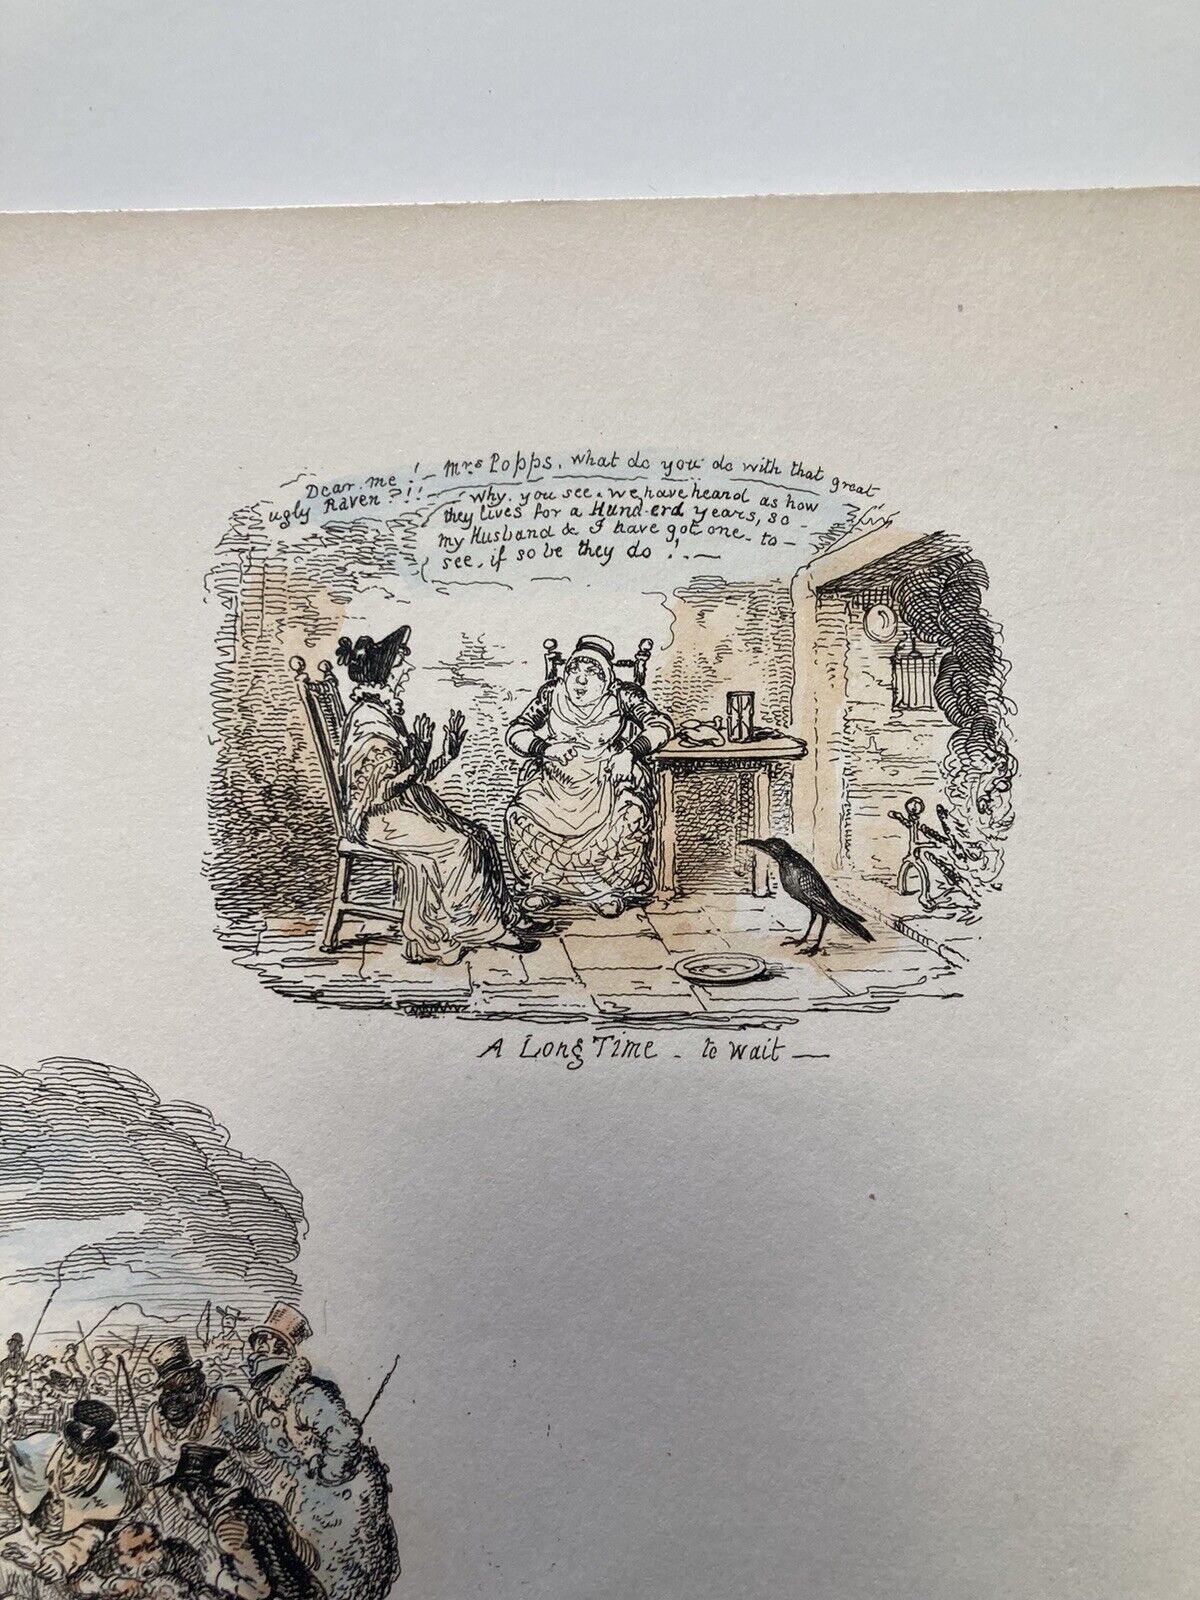 Dear me! - Mrs Popps, what do you do with that great
ugly Raven?!!-
why. you see. we have heard as how
they lives for a Hund-erd years, so -
my Husband & I have got one - to -
see, if so be they do! . . -
A Long Time - to wait -